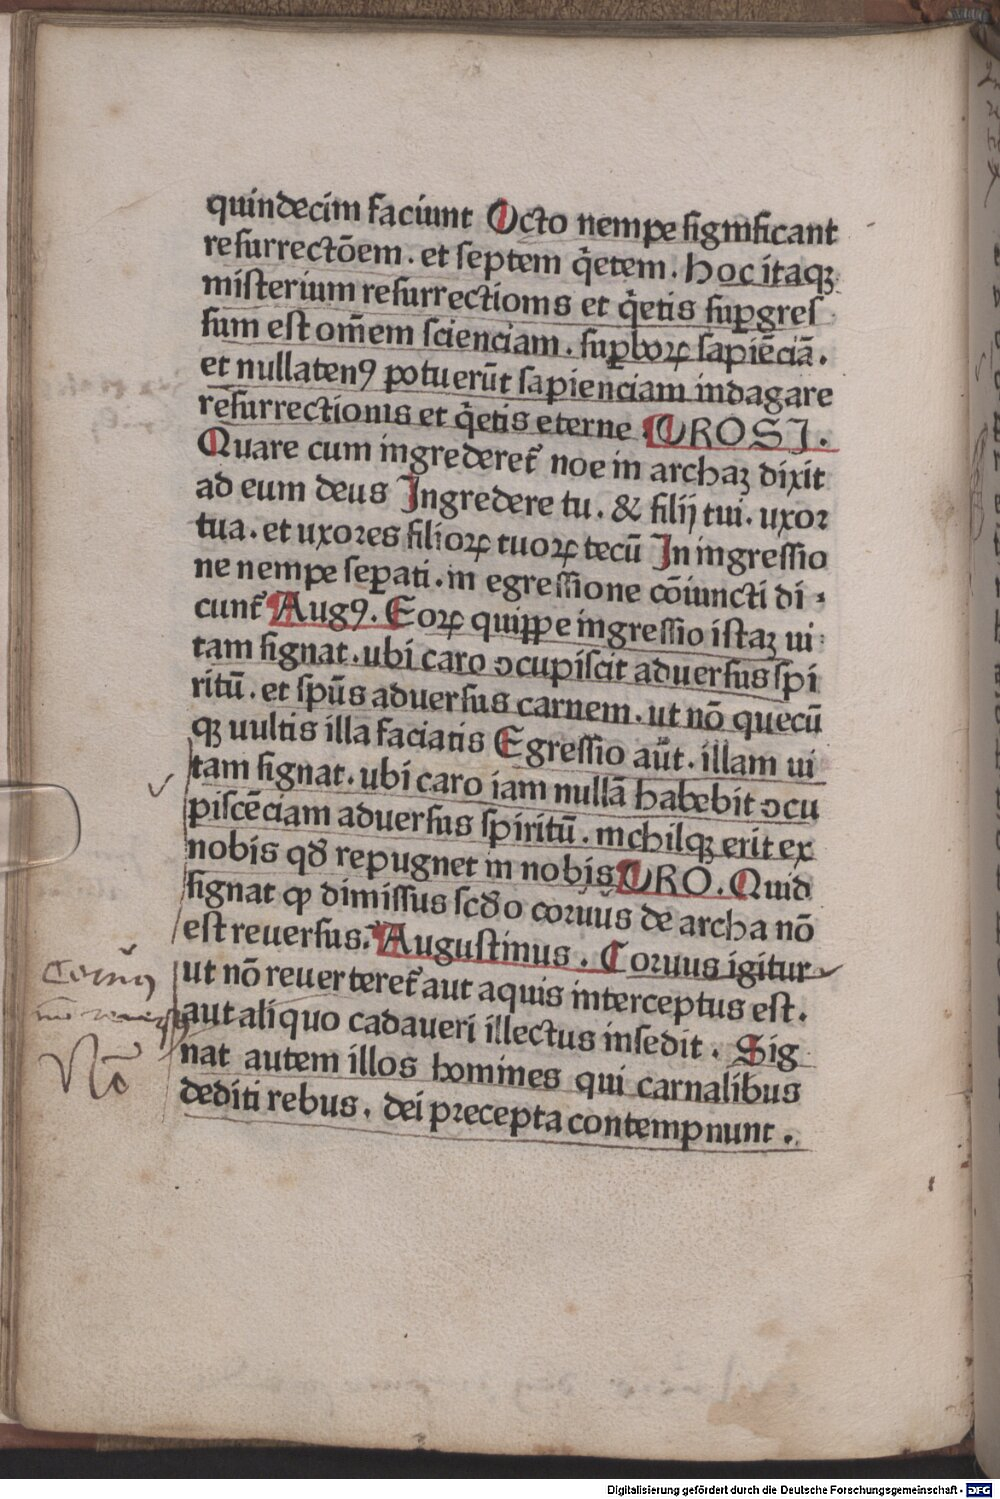 quindecim faciunt Octo nempe significant
resurrectōem. et septem q̇etem. hoc itaqꝫ
misterium resurrectionis et q̇etis suꝑgres
sum est om̄em scienciam. suꝑborꝝ sapiēciā.
et nullatenꝰ potuerūt sapienciam indagare
resurrectionis et q̇etis eterne OROSI.
Quare cum ingrederet᷑ noe in archaꝫ dixit
ad eum deus Ingredere tu. & filij tui. uxor
tua. et uxores filiorꝝ tuorꝝ tecū In ingressio
ne nempe seꝑati. in egressione cōiuncti di
cunt᷑ Augꝰ. Eorꝝ quippe ingressio istaꝫ ui
tam signat. ubi caro ↄcupiscit aduersus spi
ritū. et spūs aduersus carnem. ut nō quecū
qꝫ uultis illa faciatis Egressio aūt. illam ui
tam signat. ubi caro iam nullā habebit ↄcu
piscēciam aduersus spiritū. nichilqꝫ erit ex
nobis qđ repugnet in nobis ORO. Quid
signat ꝙ dimissus scđo coruus de archa nō
est reuersus. Augustinus. Coruus igitur
ut nō reuerteret᷑ aut aquis interceptus est.
aut aliquo cadaueri illectus insedit. Sig
nat autem illos homines qui carnalibus
dediti rebus. dei precepta contempnunt.
Coruꝰ
Nō
Digitalisierung gefördert durch die Deutsche Forschungsgemeinschaft - DFG